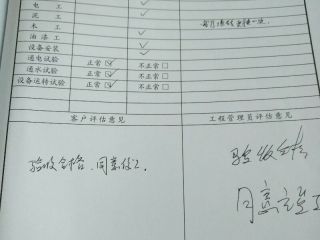 电 工 ✓
泥 工 ✓
木 工
油 漆 工 ✓
设备安装 ✓
通电试验 正常☑ 不正常□
通水试验 正常☑ 不正常□
设备运转试验 正常☑ 不正常□
客户评估意见 工程管理员评估意见
验收合格、同意竣工. 验收合格
同意竣工